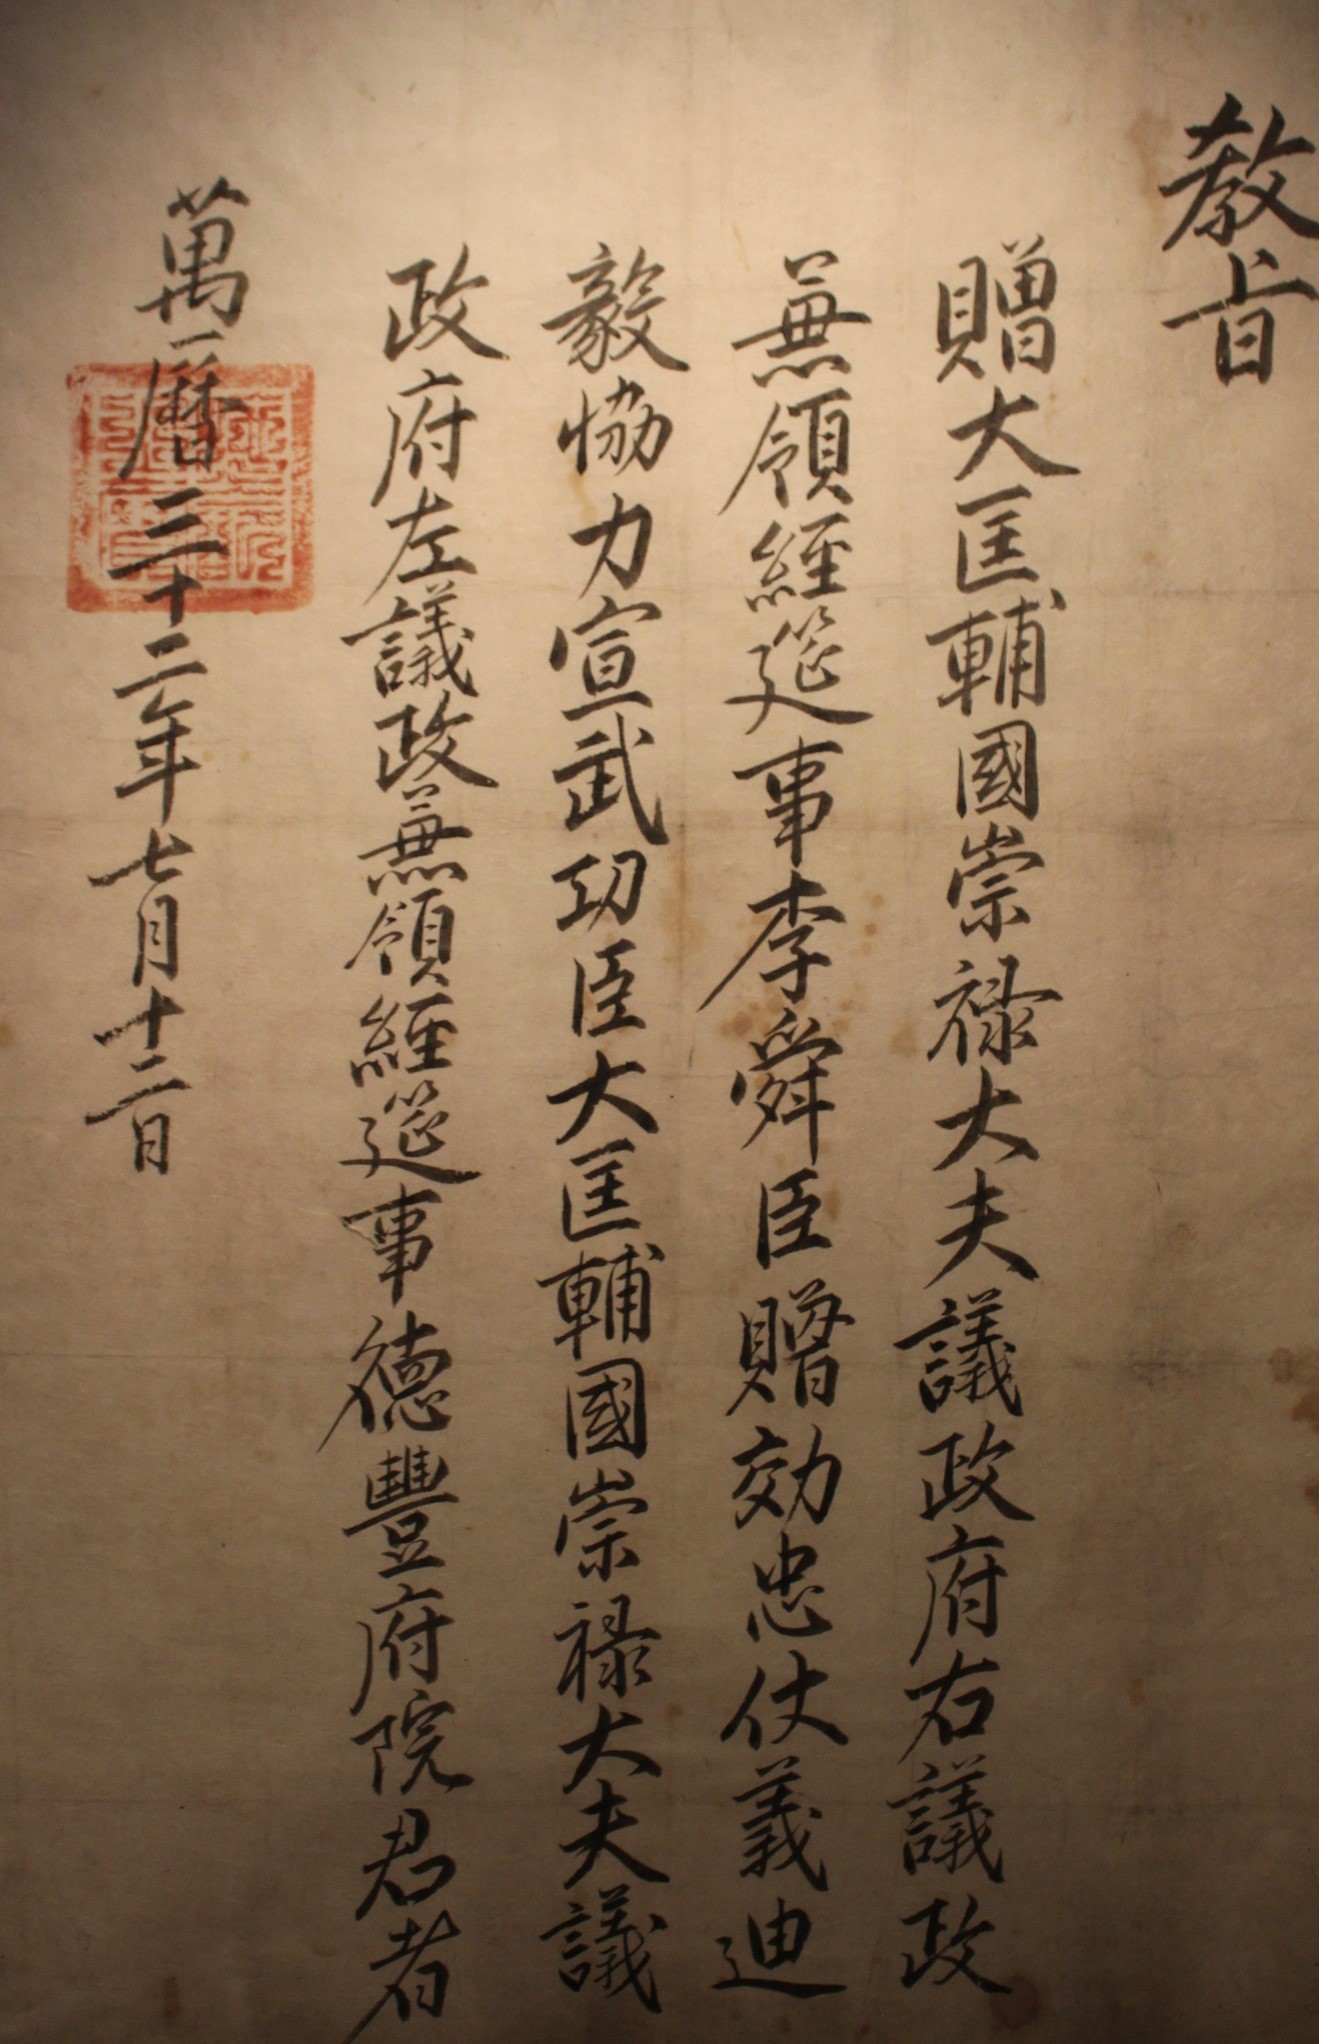 教旨
贈大匡輔國崇祿大夫議政府右議政
兼領經筵事李舜臣贈効忠仗義迪
毅恊力宣武功臣大匡輔國崇祿大夫議
政府左議政兼領經筵事德豐府院君者
萬曆三十二年七月十二日